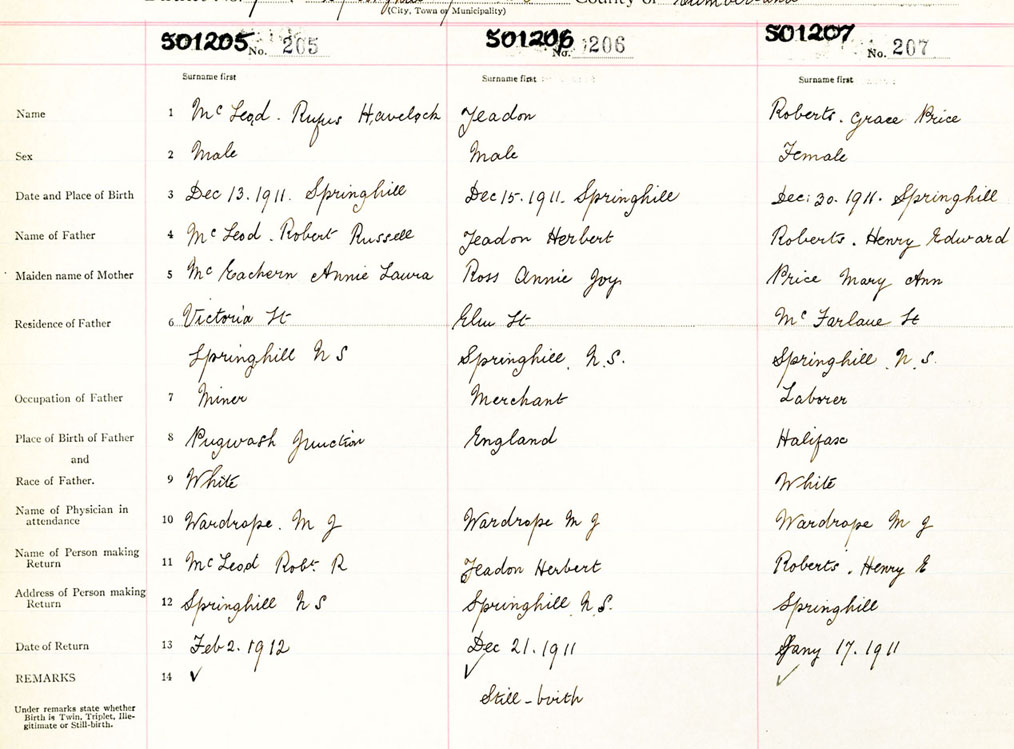 (City, Town or Municipality)
County of Cumberland
S01205 No. 205 S01206 No. 206 S01207 No. 207
Surname first Surname first Surname first
Name 1 McLeod. Rufus Havelock Jeadon Roberts. Grace Price
Sex 2 Male Male Female
Date and Place of Birth 3 Dec 13. 1911. Springhill Dec 15. 1911. Springhill Dec: 30. 1911. Springhill
Name of Father 4 McLeod. Robert Russell Jeadon Herbert Roberts. Henry Edward
Maiden name of Mother 5 McEachern Annie Laura Ross Annie Joy Price Mary Ann
Residence of Father 6 Victoria St Elm St McFarlane St
Springhill N S Springhill. N.S. Springhill. N.S.
Occupation of Father 7 Miner Merchant Laborer
Place of Birth of Father 8 Pugwash Junction England Halifax
and
Race of Father. 9 White White
Name of Physician in
attendance 10 Wardrope. M J Wardrope M J Wardrope M J
Name of Person making
Return 11 McLeod Robt. R Jeadon Herbert Roberts. Henry E
Address of Person making
Return 12 Springhill N S Springhill N.S. Springhill
Date of Return 13 Feb 2. 1912 Dec 21. 1911 Jany 17. 1911
REMARKS 14 ✓ ✓ ✓
Still-birth
Under remarks state whether
Birth is Twin, Triplet, Ille-
gitimate or Still-birth.